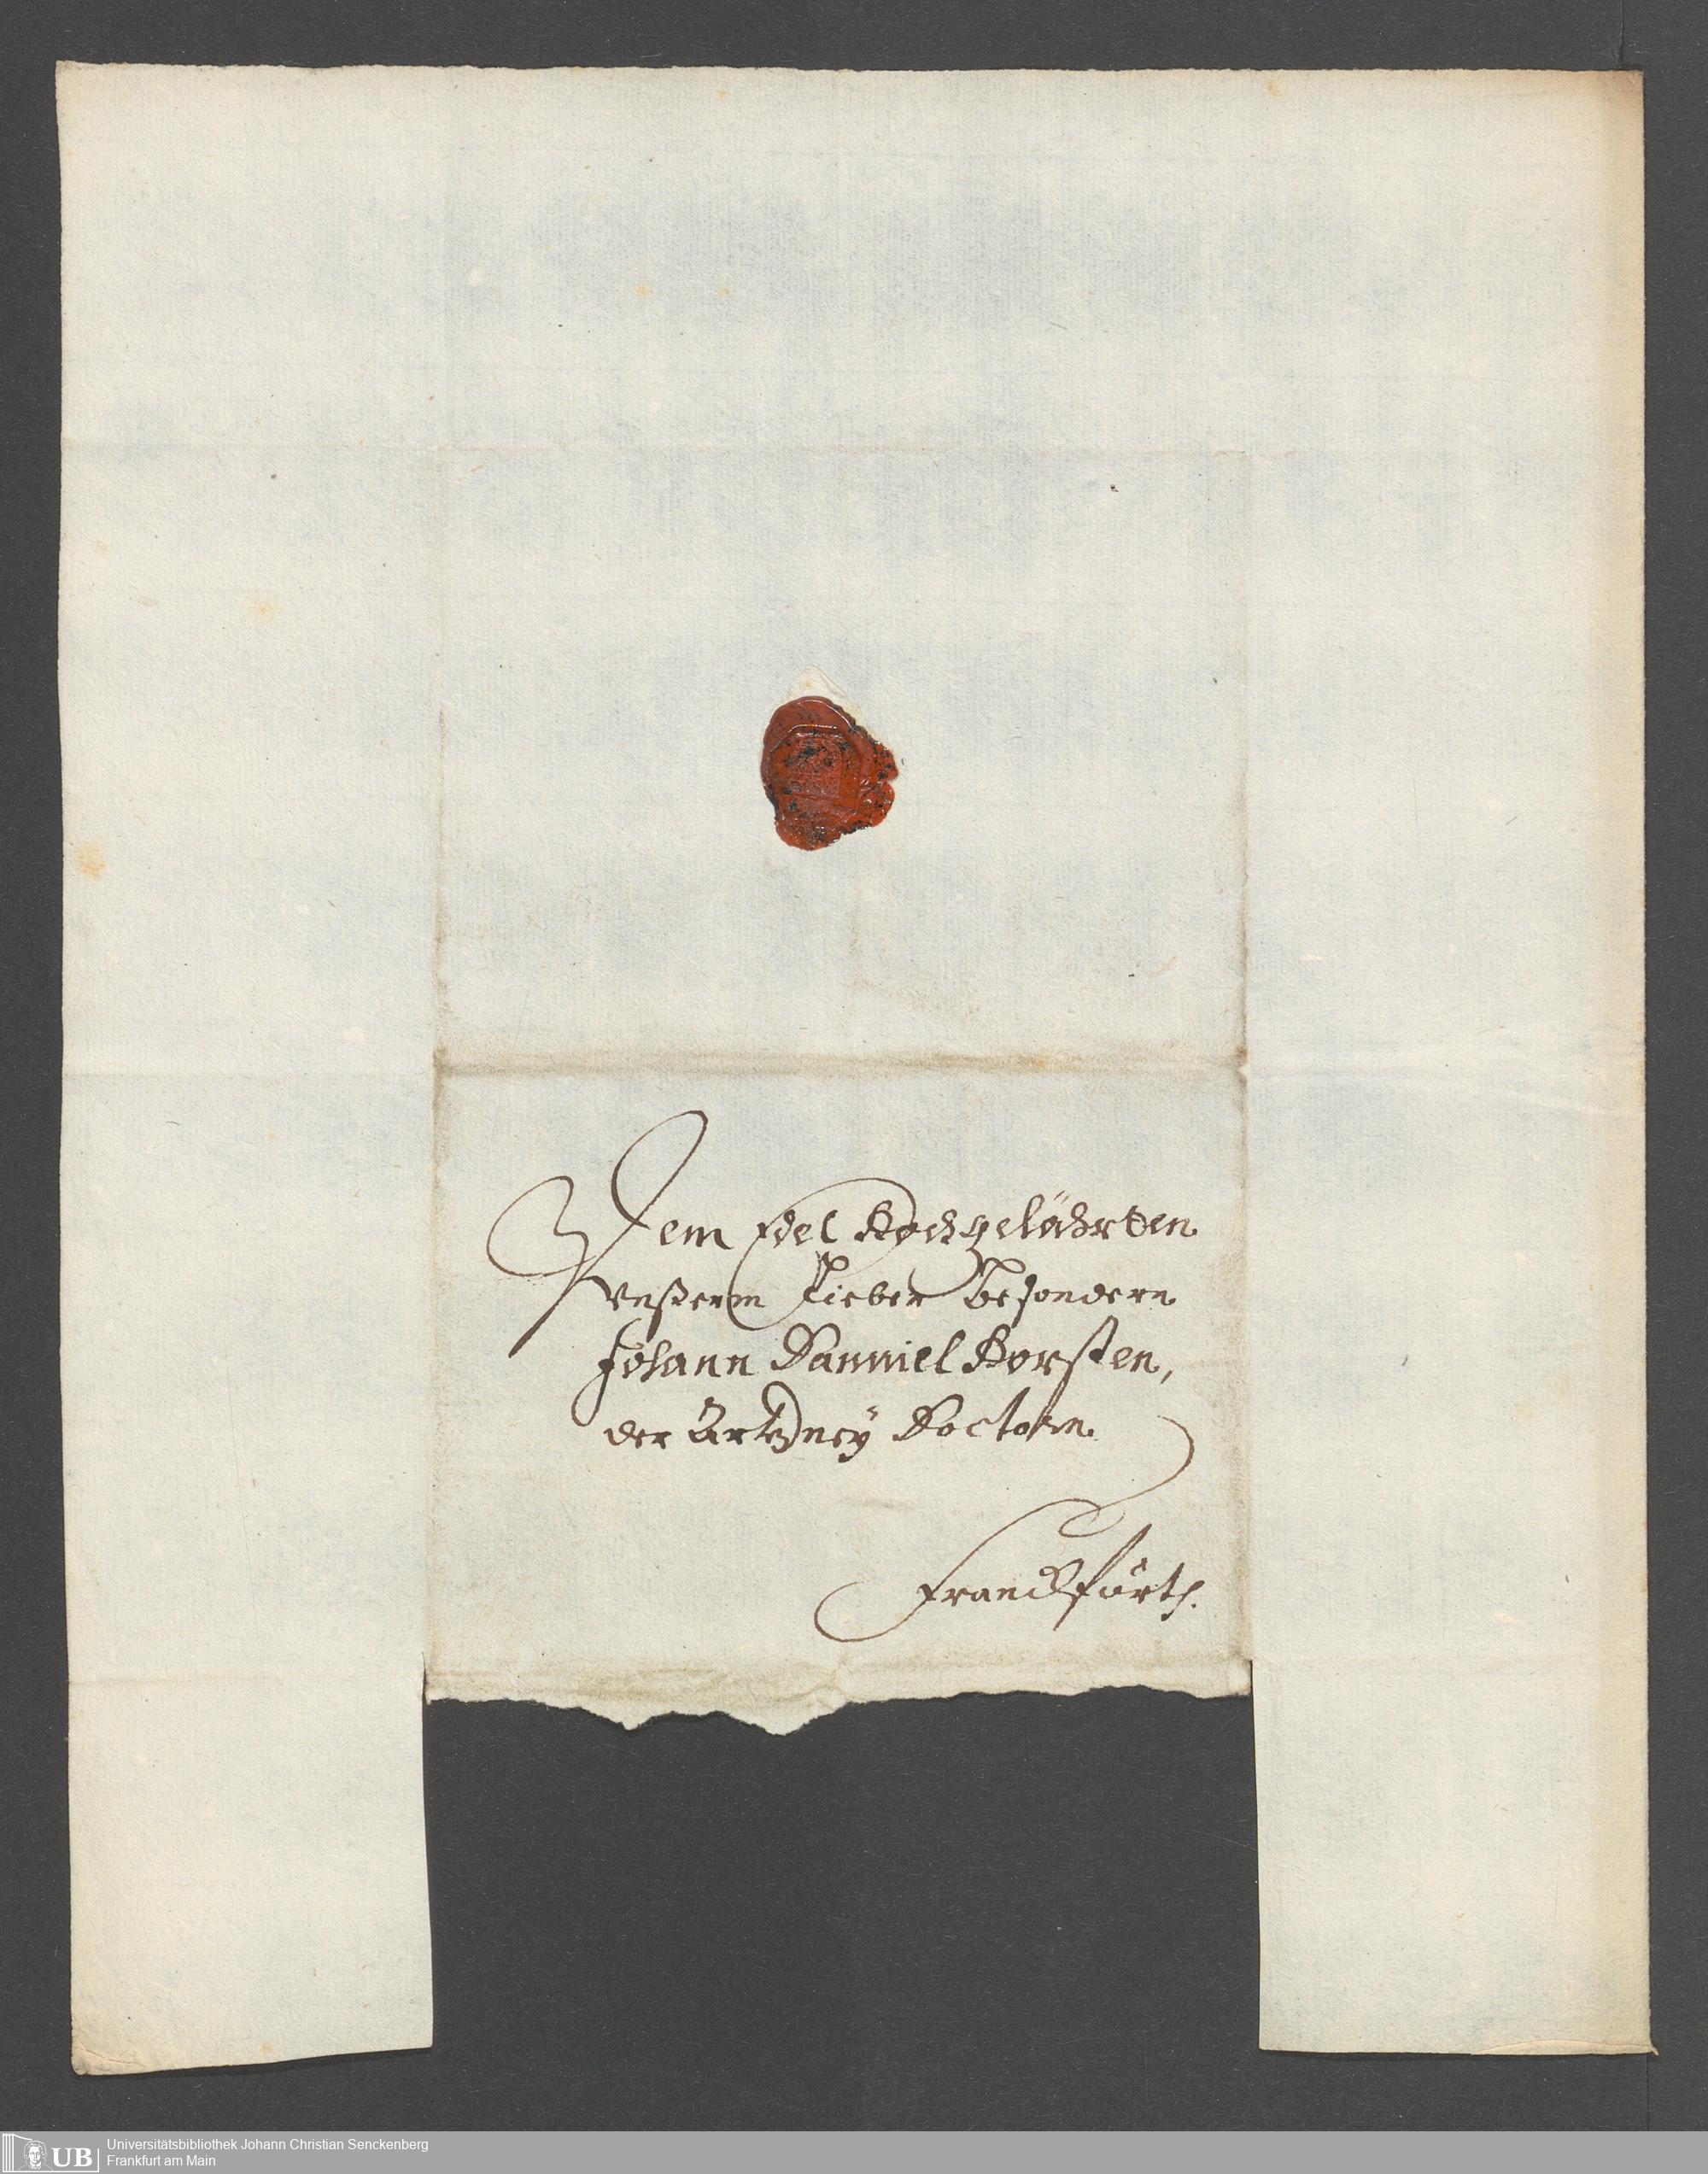 Dem Edel Hochgelährten
Vnßerm Lieben Besondern
Johann Danniel Horsten,
der Artzney Doctorn
Franckfürth.
UB
Universitätsbibliothek Johann Christian Senckenberg
Frankfurt am Main